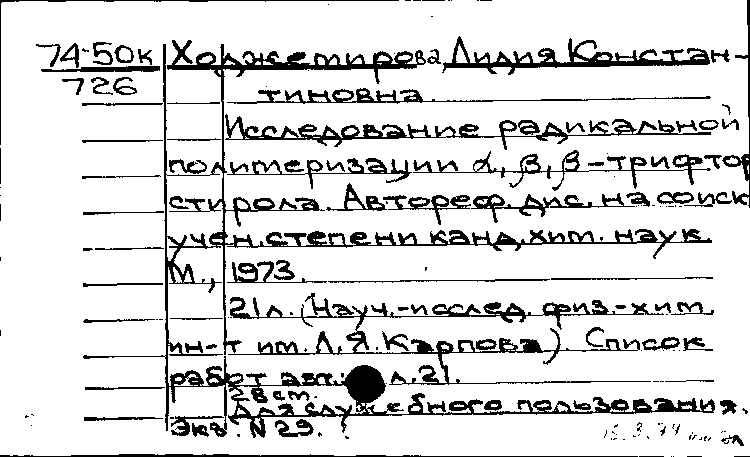 74-50к Ходжемирова, Лидия Констан-
726
тиновна.
Исследование радикальной
полимеризации α, β, β-трифтор
стирола. Автореф. дис. на соиск
учен. степени канд. хим. наук.
М., 1973.
21л. (Науч.-исслед. физ.-хим.
ин-т им. Л. Я. Карпова). Список
работ авт.: л.21.
28 ст.
Для служебного пользования.
Экз. N 29.